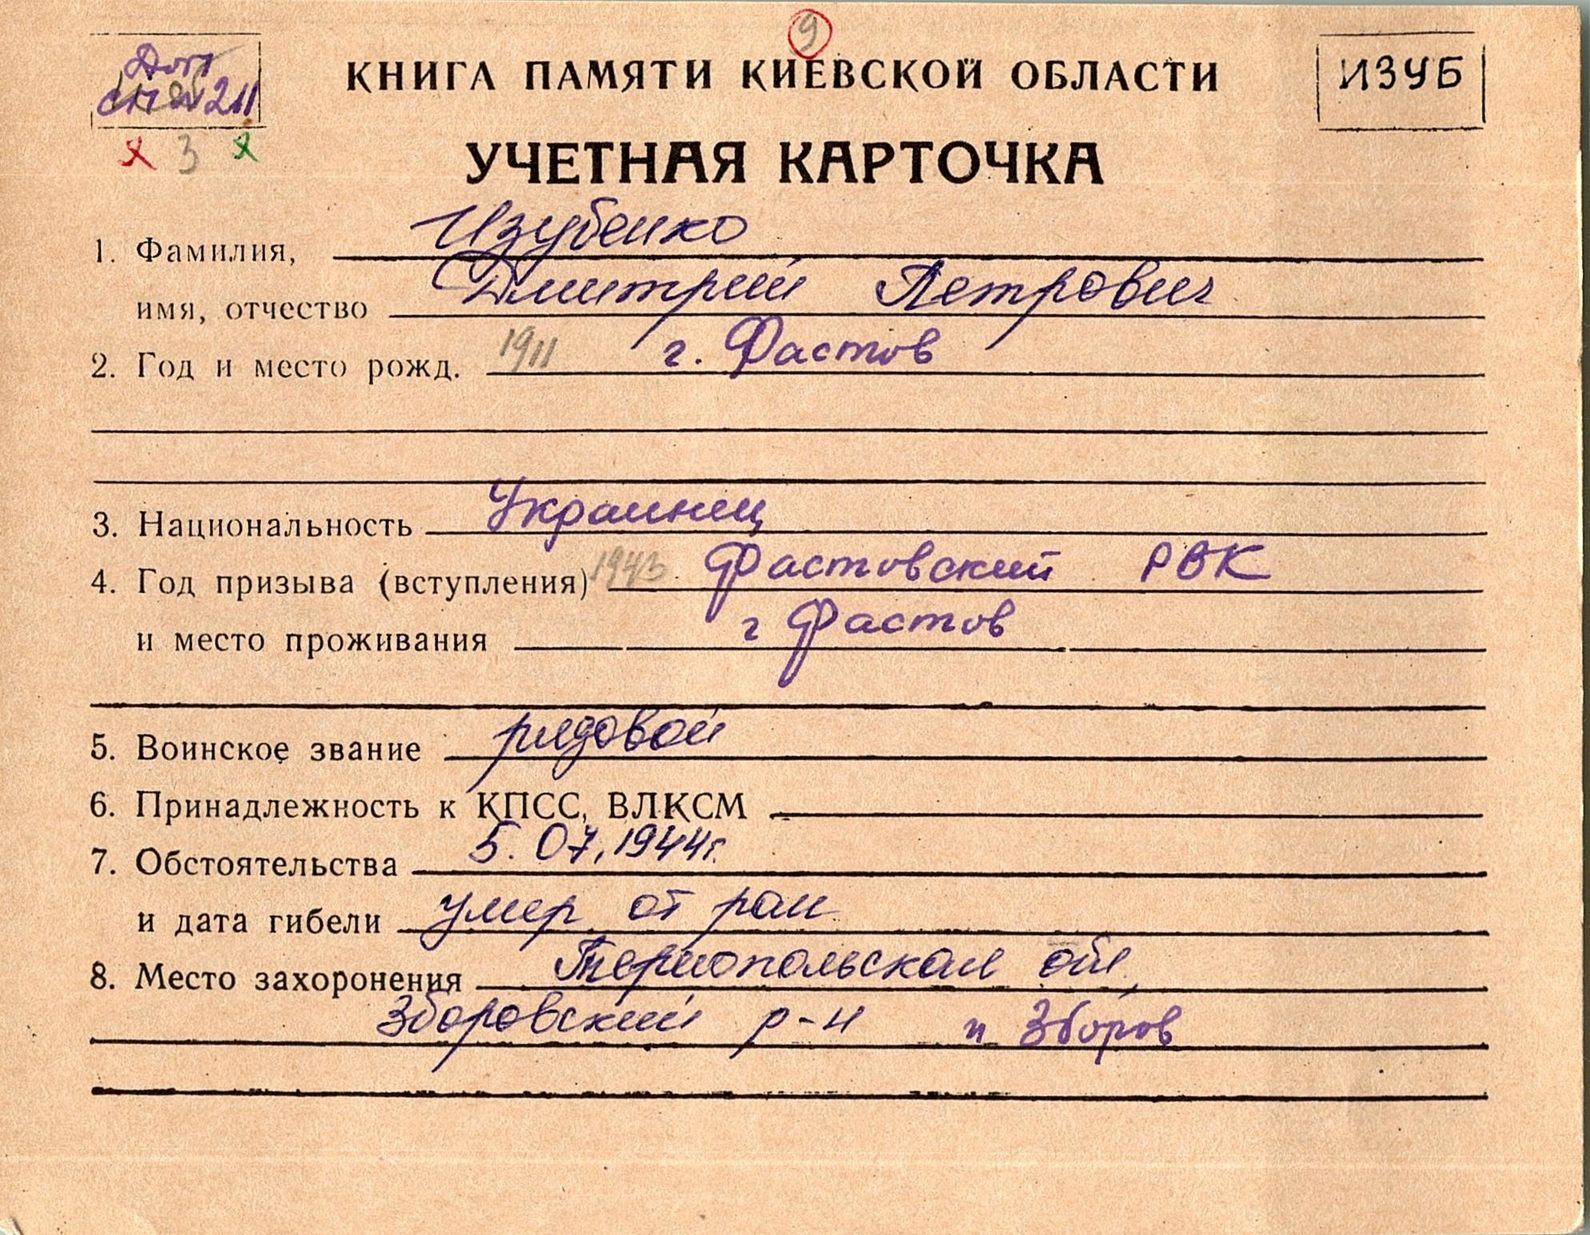 9
КНИГА ПАМЯТИ КИЕВСКОЙ ОБЛАСТИ
ИЗУБ
Доп
211
3
УЧЕТНАЯ КАРТОЧКА
1. Фамилия, Изубенко
имя, отчество Дмитрий Петрович
2. Год и место рожд. 1911 г. Фастов
3. Национальность Украинец
4. Год призыва (вступления) 1943 Фастовский РВК
и место проживания г Фастов
5. Воинское звание рядовой
6. Принадлежность к КПСС, ВЛКСМ
7. Обстоятельства 5.07.1944г.
и дата гибели умер от ран
8. Место захоронения Тернопольская обл.
Зборовский р-н п Зборов